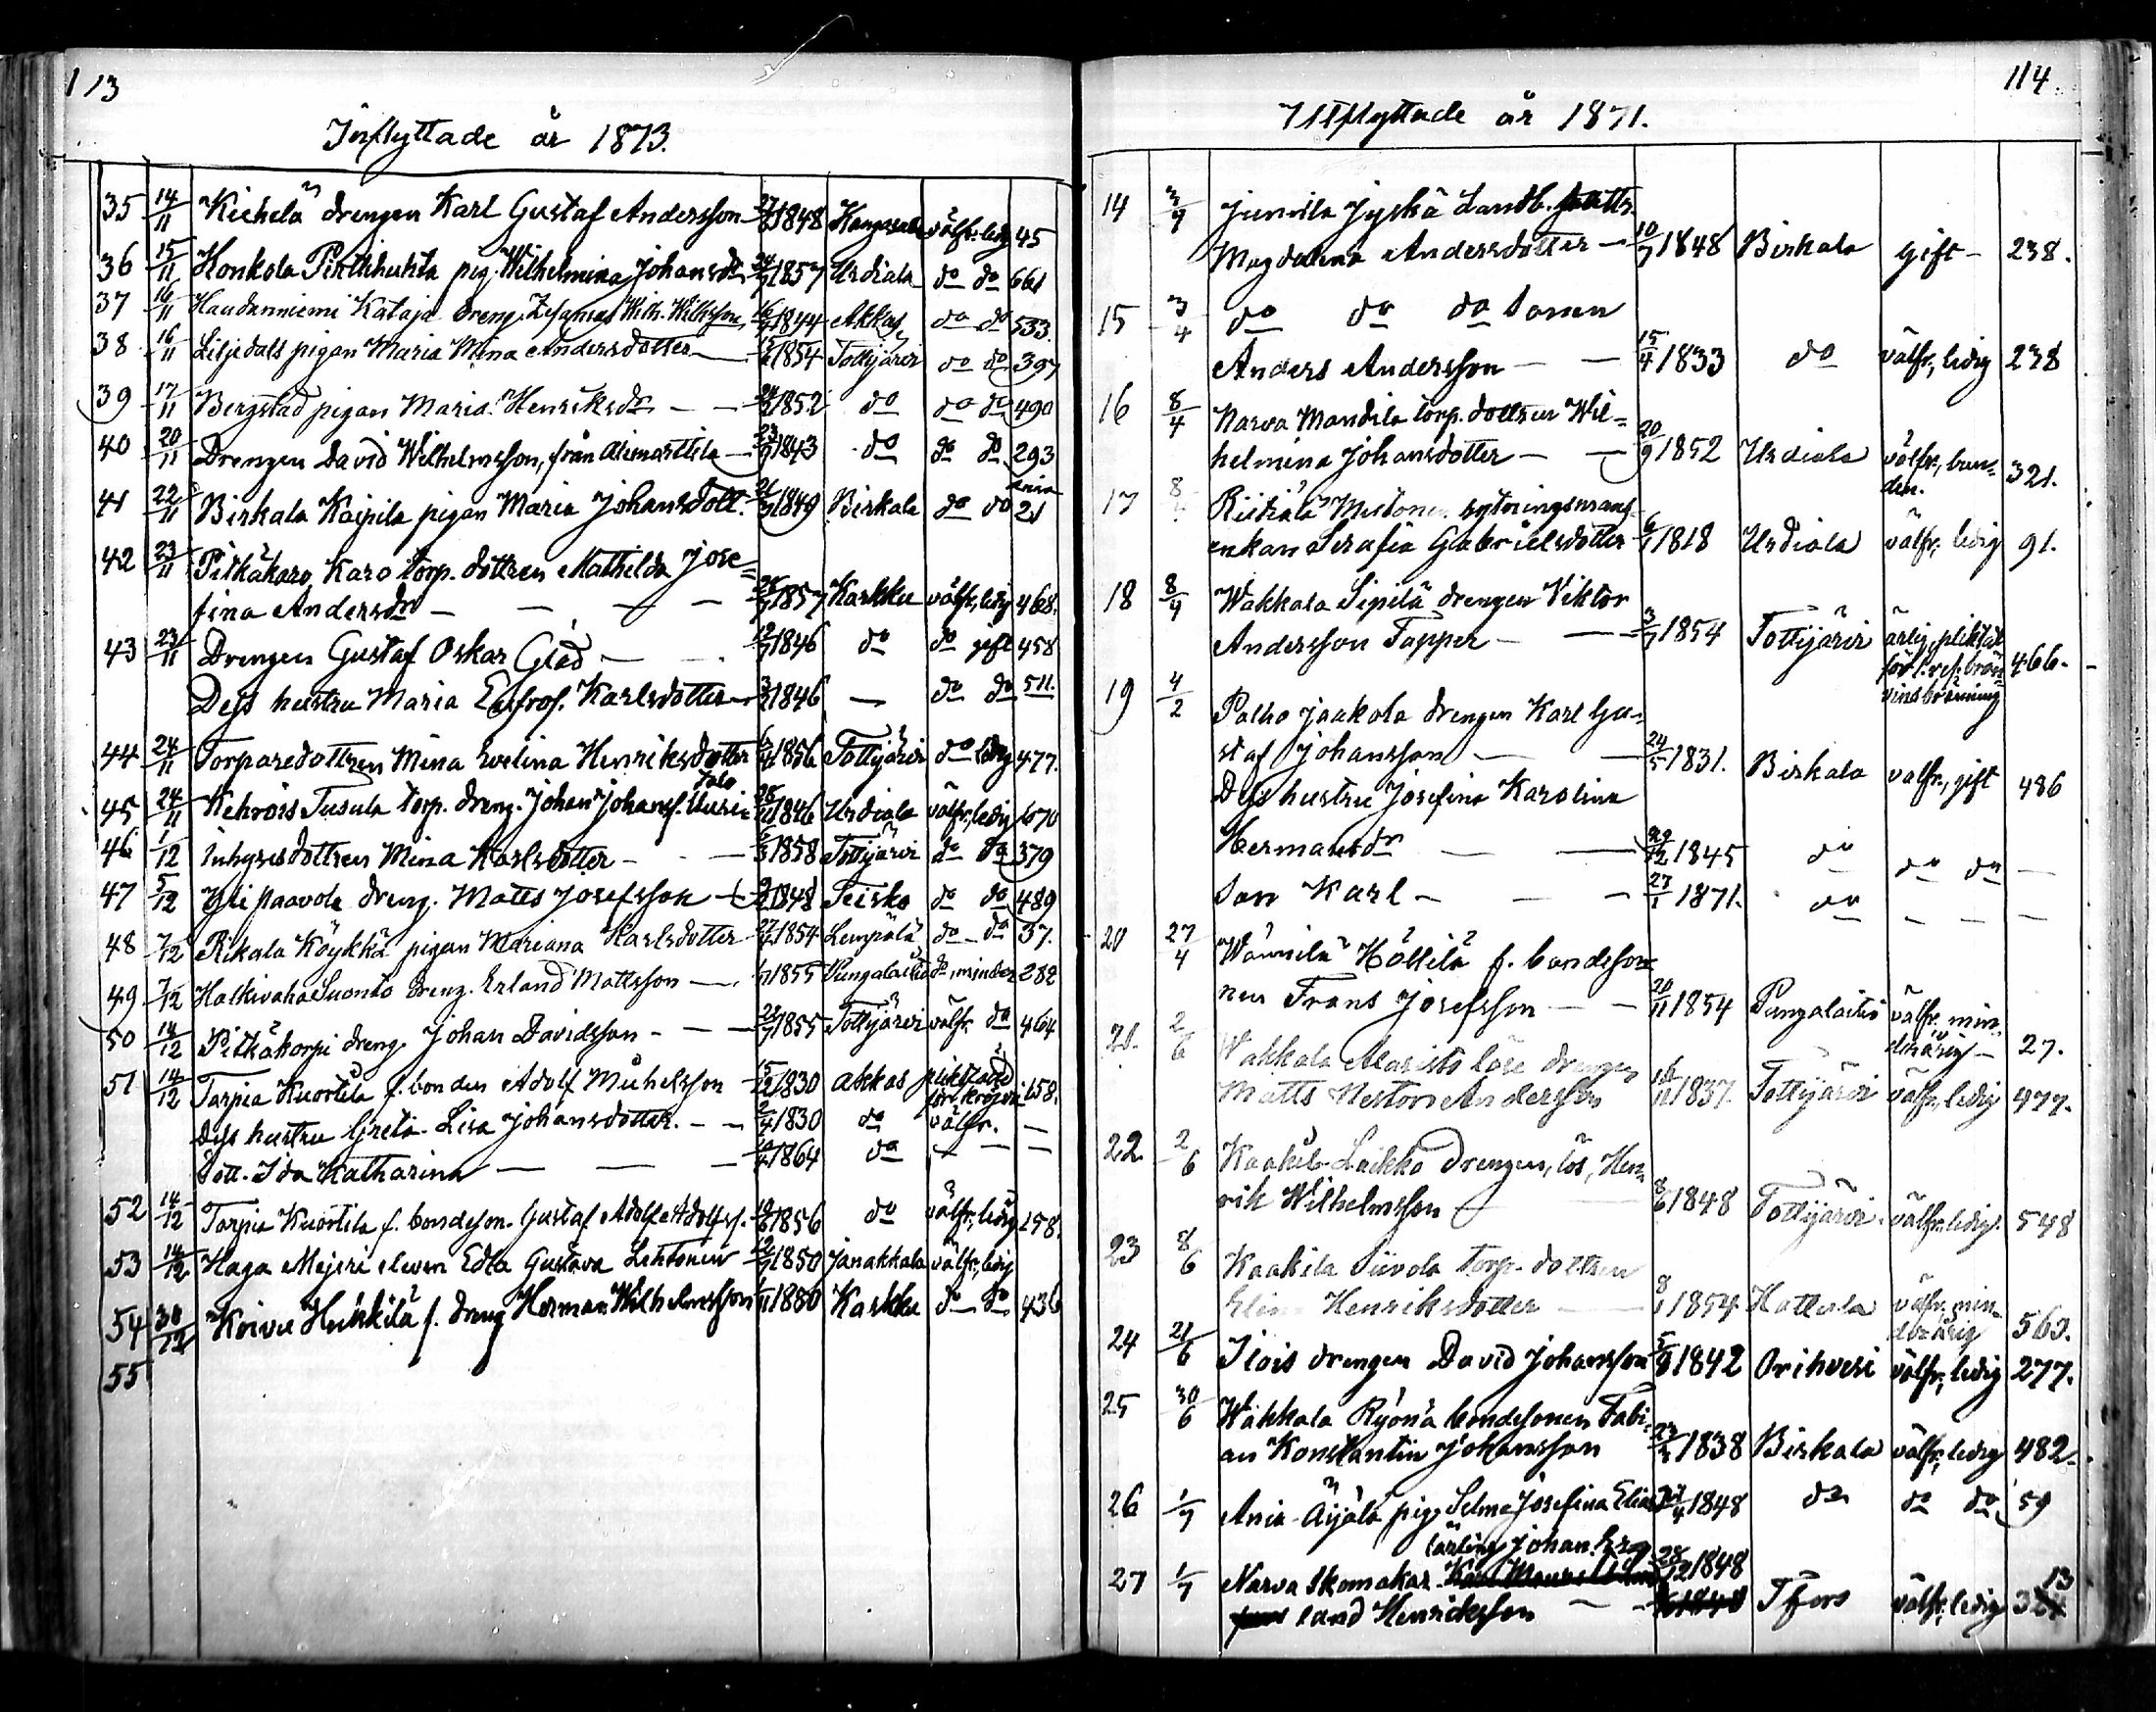 113
Inflyttade år 1873.
35 14/11 Kiehelä drengen Karl Gustaf Andersson 1848 Kangasala välfr. ledig 45
36 15/11 Honkola Penttihuhta pig. Wilhelmina Johansdr 1857 Urdiala do do 661
37 16/11 Haudanniemi Kataja dreng. Wilh. Wilhsson 1844 Akkas do do 533
38 16/11 Liljedals pigan Maria Mina Andersdotter — 1854 Tottijärvi do do 397
39 17/11 Bergstad pigan Maria Henriksdr — — 1852 do do do 490
40 20/11 Drengen David Wilhelmsson, från Alimarttila — 1843 do do do 293
41 22/11 Birkala Kaipila pigan Maria Johansdott. 1849 Birkala do do 21
42 23/11 Pitkäkaro Karo torp. dottren Mathilda Jose=
fina Andersdr — — — — 1857 Karkku välfr., ledig 468.
43 23/11 Drengen Gustaf Oskar Glad — — 1846 do do gift 458
Dess hustru Maria Eufros. Karlsdotter — 1846 — do do 511.
44 24/11 Torparedottren Mina Evelina Henriksdotter 1856 Tottijärvi do ledig 477.
45 24/11 Kehrois Tusula torp. dreng. Johan Johanss. Uusi= talo 1846 Urdiala välfr., ledig 670
46 1/12 Inhysesdottren Mina Karlsdotter — — 1858 Tottijärvi do do 379
47 5/12 Yli paavola dreng. Matts Josefsson — 1848 Teisko do do 489
48 7/12 Rikala Köykkä pigan Mariana Karlsdotter 1854 Lempälä do — do 37.
49 7/12 Halkivaha Suonto dreng. Erland Mattsson — 1855 Pungalaitio do, minder 282
50 14/12 Pitkäkorpi dreng. Johan Davidsson — — 1855 Tottijärvi välfr. do 464
51 14/12 Tarpia Kuortila f. bonden Adolf Michelsson 15/12 1830 Akkas pliktad för 158.
Dess hustru Greta Lisa Johansdotter. — — 2/4 1830 do välfr. —
Dott. Ida Katharina — — — 1864 do — — —
52 14/12 Tarpia Kuortila f. bondeson. Gustaf Adolf Adolfss. 1856 do välfr., ledig 158.
53 14/12 Haga Mejeri eleven Edla Gustava Lehtonen 1850 Janakkala välfr., ledig
54 30/12 Koivu Heikkilä f. dreng Herman Wilhelmsson 1880 Karkku do do 436
55
114
Utflyttade år 1871.
14 Junnila Jyskä Landb.
Magdalena Andersdotter — 10/7 1848 Birkala gift — 238.
15 3/4 do do do Sonen
Anders Andersson — — 15/4 1833 do välfr., ledig 238
16 8/4 Narva Mandila torp. dottren Wil=
helmina Johansdotter — — 20/9 1852 Urdiala välfr., bun=
den. 321.
17 8/4 Riihiala sytningsmans=
enkan Serafia Gabrielsdotter 6/1 1818 Urdiala välfr., ledig 91.
18 8/4 Wakkala Sipilä drengen Viktor
Andersson Tapper — — 3/7 1854 Tottijärvi ärlig, pliktat
för brän=
vinsbränning 466.
19 4/2 Palho Jaakola drengen Karl Gu=
staf Johansson — — 24/5 1831. Birkala välfr., gift 486
Dess hustru Josefina Karolina
Hermansdr — — 29/12 1845 do do do —
Son Karl — — — 27/1 1871. do — — —
20 27/4 Wännilä Höllilä f. bondeso=
nen Frans Josefsson — — 20/11 1854 Pungalaitio välfr., min=
derårig — 27.
21. 2/6 Wakkala Maristo löse drengen
Matts Nestor Andersson 1837. Tottijärvi välfr., ledig 477.
22 2/6 Kaakila Laikko drengen, lös, Hen=
rik Wilhelmsson 8/6 1848 Tottijärvi. välfr. ledig. 548
23 8/6 Kaakila Siivola torp. dottren
Henriksdotter — 8/1 1854 Hattula välfr., min=
derårig 563.
24 21/6 Ilois drengen David Johansson 5/9 1842 Orihvesi välfr., ledig 277.
25 30/6 Wakkala Ryönä bondesonen Fabi=
an Konstantin Johansson 1838 Birkala välfr., ledig 482.
26 1/7 Ania Äijälä pig. Selma Josefina 1848 do do do 59
lärling Johan Er=
27 1/7 Narva Skomakar 28/12 1848
land Henriksson — — Tfors välfr., ledig 13